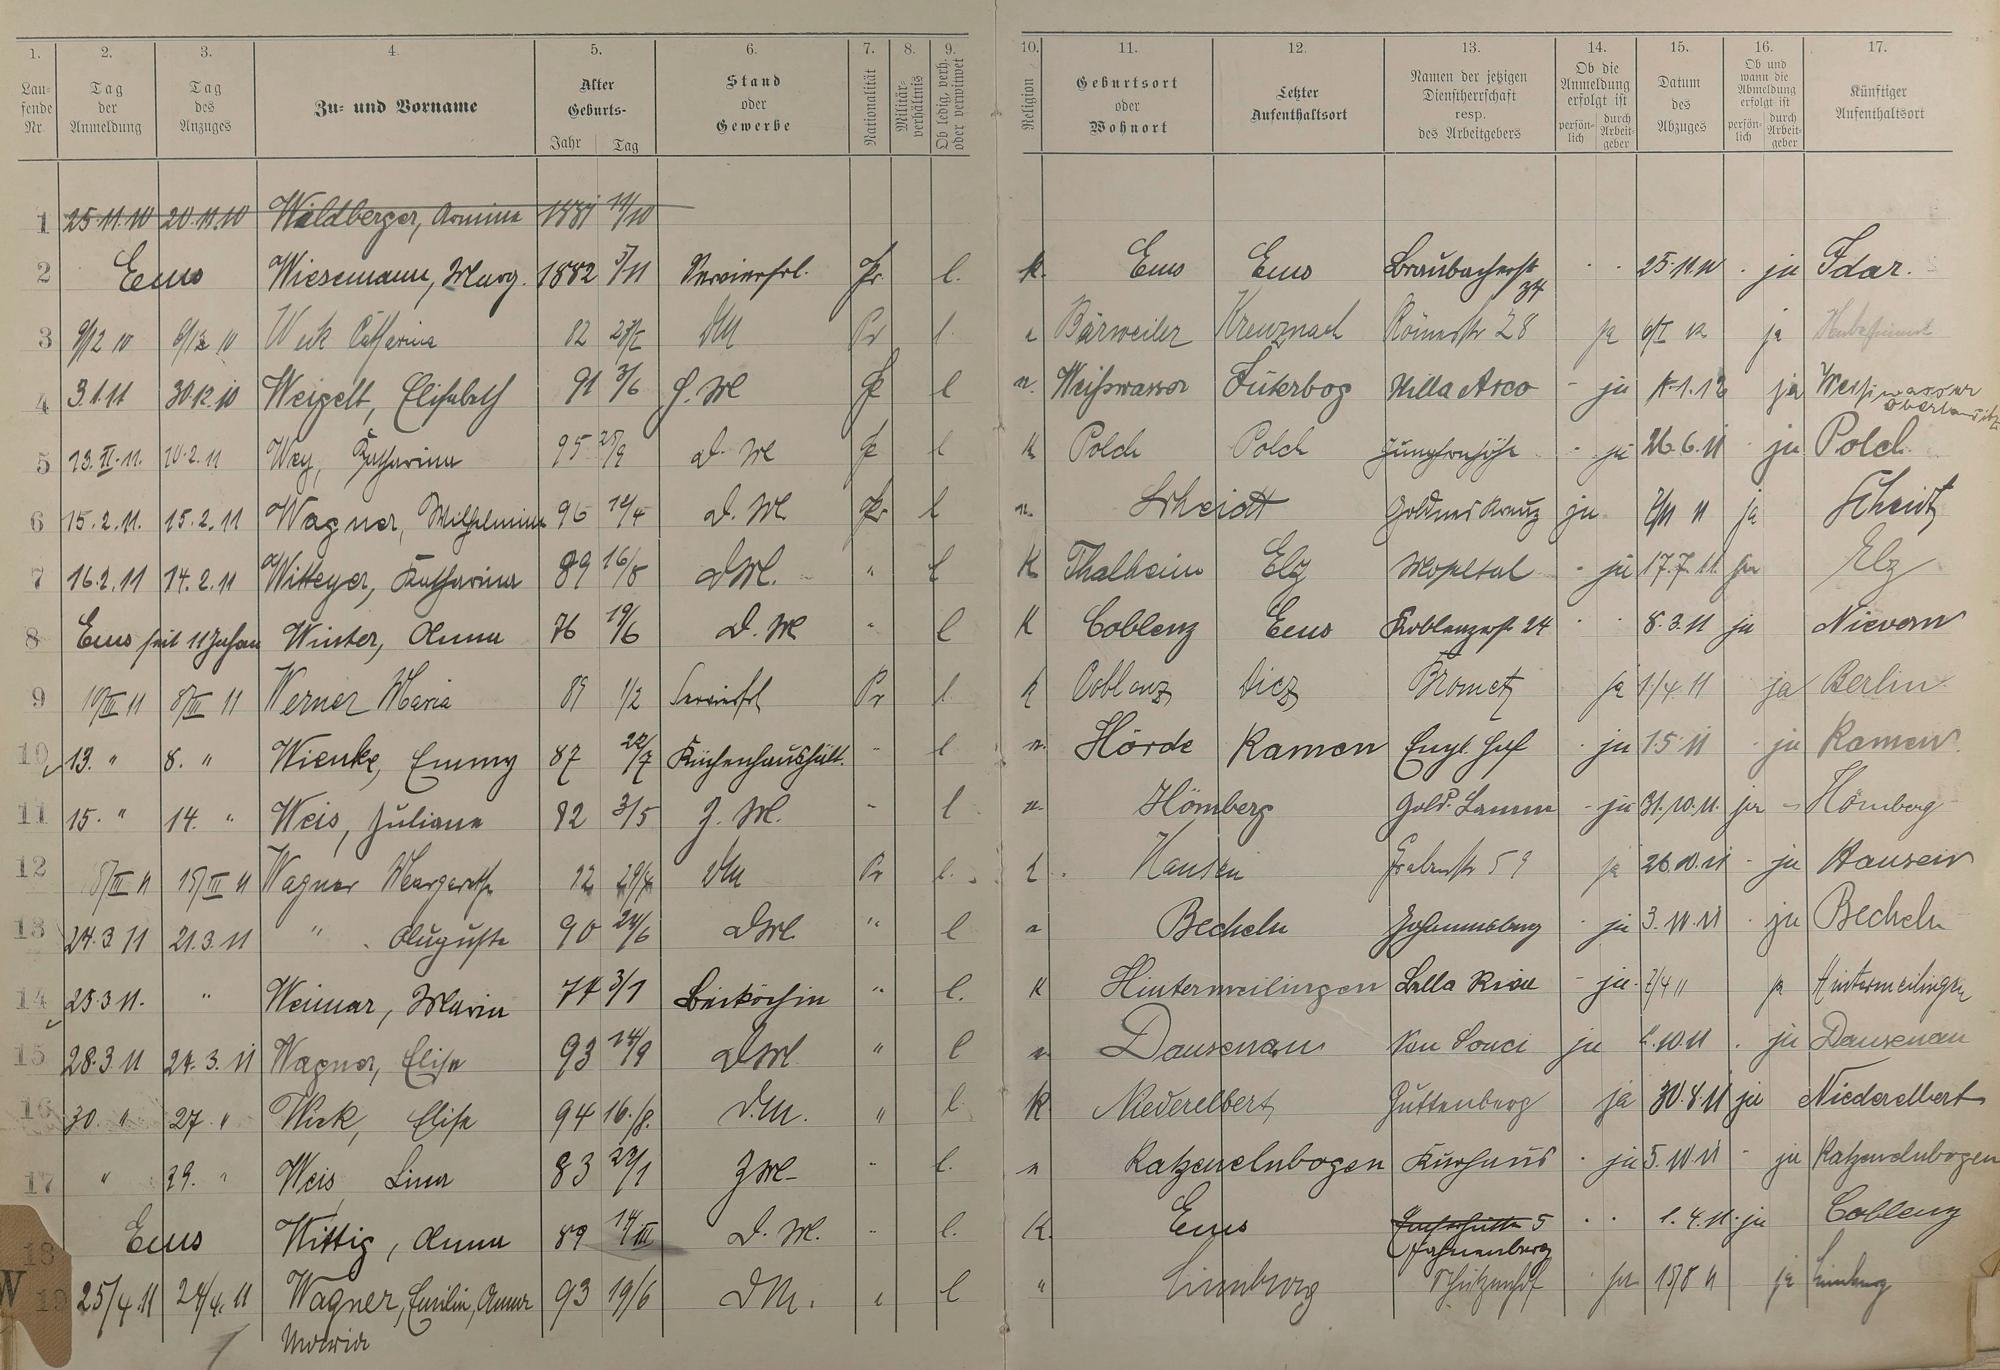 1. 2. 3. 4. 5. 6. 7. 8. 9. 10. 11. 12. 13. 14. 15. 16. 17.
Lau-
fende
Nr.
Tag
der
Anmeldung
Tag
des
Anzuges
Zu- und Vorname
Alter
Geburts-
Jahr Tag
Stand
oder
Gewerbe
Nationalität
Militär-
verhältnis
Ob ledig, verh.
oder verwitwet
Religion
Geburtsort
oder
Wohnort
Letzter
Aufenthaltsort
Namen der jetzigen
Dienstherrschaft
resp.
des Arbeitgebers
Ob die
Anmeldung
erfolgt ist
persön-
lich
durch
Arbeit-
geber
Datum
des
Abzuges
Ob und
wann die
Abmeldung
erfolgt ist
persön-
lich
durch
Arbeit-
geber
Künftiger
Aufenthaltsort
1 25.11.10 20.11.10 Waldberger, 1881 11/10
2 Ems Wiesemann, Marg. 1882 5/11 Servierfrl. Pr. l. k. Ems Ems Braubacherstr 34 25.11.10 ja Idar.
3 9/12 10 6/12 10 Weck Catharina 82 Pr l. Bärweiler Kreuznach Römerstr 28 ja ja
4 3.1.11 30.12.10 Weigelt, Elisabeth 91 3/6 Z. M. Pr l Weißwasser Jüterbog Villa Arco - ja ja Weißwasser
Oberlausitz
5 13.II.11. 10.2.11 Wey, Katharina 95 25/9 D. M. Pr l k Polch Polch - ja 26.6.11 ja Polch.
6 15.2.11. 15.2.11 Wagner, Wilhelmine 96 D. M. Pr l Scheidt Goldnes Kreuz ja ja Scheidt
7 16.2.11 14.2.11 Witteyer, Katharina 89 16/8 D.M. " l K Thalheim Elz Moseltal - ja 17.7.11 ja Elz
8 Ems seit 11 Jahren Winter, Anna 76 19/6 D. M. " l K Coblenz Ems Koblenzerstr. 24 8.3.11 ja Nievern
9 10/III 11 8/III 11 Werner Maria 89 1/2 Servierfrl Pr l. k Coblenz Diez Prometz ja 1/4 11 ja Berlin
10 13. " 8. " Wienke, Emmy 87 22/7 Küchenhaushält. " l Hörde Kamen Engl. Hof ja 1.5.11 ja Kamen
11 15. " 14. " Weis, Juliane 82 3/5 Z. M. " l Hömberg Gold. Lamm - ja 31.10.11. ja - Hömberg
12 15/III 11 Wagner Margarethe Pr l. k Hausen Grabenstr 59 ja 26.10.11 - ja Hausen
13 24.3 11 21.3.11 " Auguste 90 24/6 D.M. " l Becheln Johannisberg - ja 3.10.11 ja Becheln
14 25.3 11. " Weimar, Maria 74 3/1 Beiköchin " l. K Hintermeilingen Bella Riva - ja 2/4 11 ja Hintermeilingen
15 28.3 11 24.3.11 Wagner, Elise 93 14/9 D.M. " l Dausenau San Souci ja 1.10.11 ja Dausenau
16 30. " 27. " Weck, Elise 94 16./8. D.M. " l. K Niederelbert Guttenberg ja 30.8.11 ja Niederelbert
17 " 29. " Weis Lina 83 23/1 Z M. " l. Katzenelnbogen Kurhaus ja 5.10.11 - ja Katzenelnbogen
18 Ems Wittig, Anna 89 14/III D. M. " l. K. Ems 5 1.4.11. ja Coblenz
Fahnenberg
W 19 25/4.11 24/4.11 Wagner, Emilie, Anna 93 19/6 D M. l " Limburg Schützenhof ja 15/8 11 ja Limburg